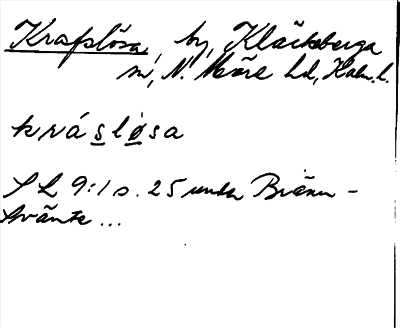 Kraflösa, by, Kläckeberga
sn, N. Möre hd, Kalm. l.
krásløsa
SL 9:1 s. 25 under Bränn-
tvänte...